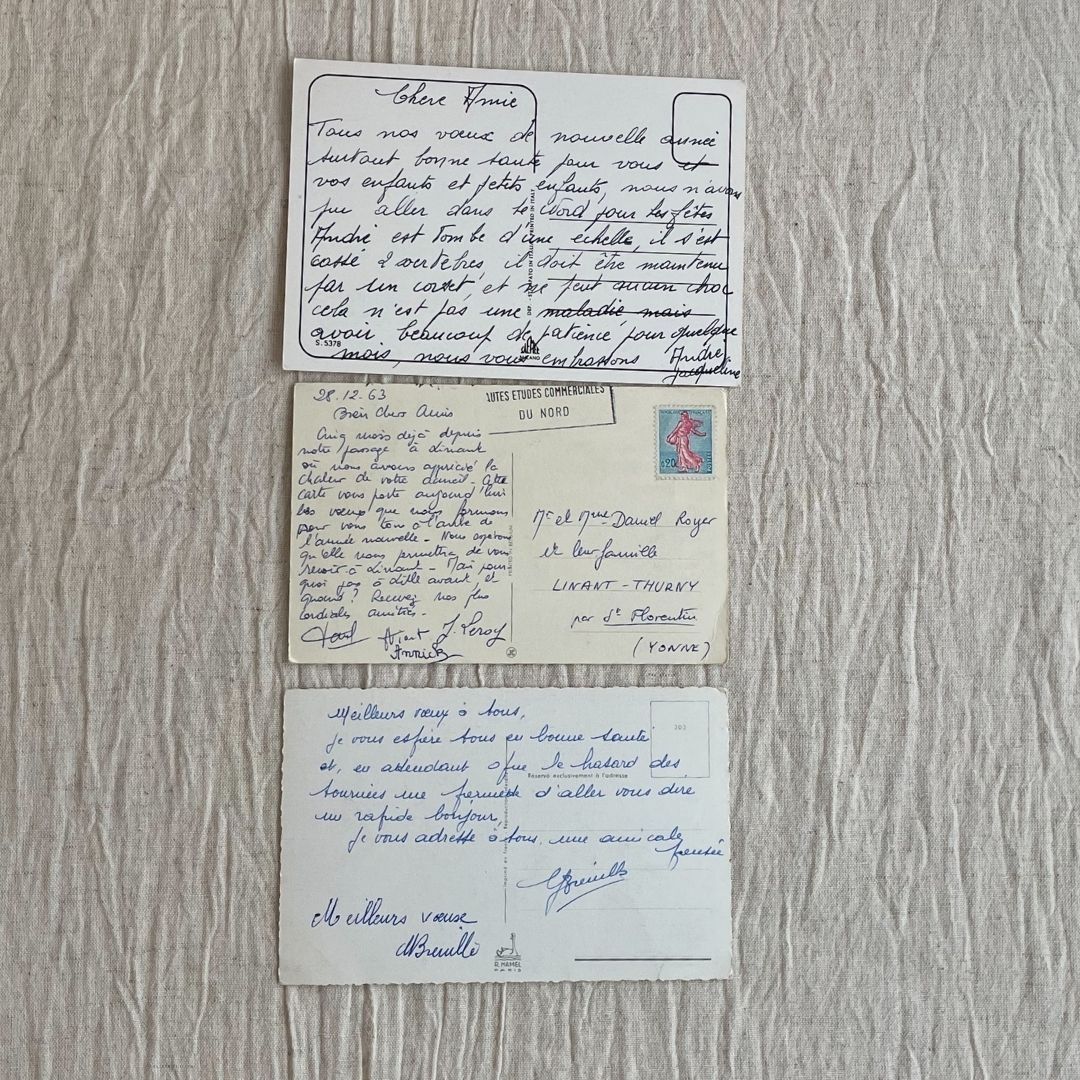 Chere Amie
Tous nos vœux de nouvelle année
surtout bonne santé pour vous et
vos enfants et petits enfants, nous n'avons
pu aller dans le Nord pour les fêtes
André est tombé d'une échelle, il s'est
cassé 2 vertèbres, il doit être maintenu
par un corset, et ne peut aucun choc
cela n'est pas une maladie mais
avoir beaucoup de patience pour quelque
mois, nous vous embrassons André
Jacqueline
S. 5378
PRINTED IN ITALY
28.12.63
Bien chers Amis
Cinq mois déjà depuis
notre passage à Linant
où nous avons apprécié la
chaleur de votre accueil. Cette
carte vous porte aujourd'hui
les vœux que nous formons
pour vous tous à l'aube de
l'année nouvelle - Nous espérons
qu'elle nous permettra de vous
revoir à Linant - Mais pour
quoi pas à Lille avant et
quand ? Recevez nos plus
cordiales amitiés -
J. Leroy
Annick
UTES ETUDES COMMERCIALES
DU NORD
0,20
POSTES
Mr et Mme Daniel Royer
et leur famille
LINANT-THURNY
par St Florentin
(YONNE)
Meilleurs vœux à tous,
je vous espère tous en bonne santé
et, en attendant que le hasard des
tournées me permette d'aller vous dire
un rapide bonjour,
je vous adresse à tous une amicale
pensée
GBreuillé
Meilleurs vœux
MBreuillé
303
Réservé exclusivement à l'adresse
R. HAMEL
PARIS